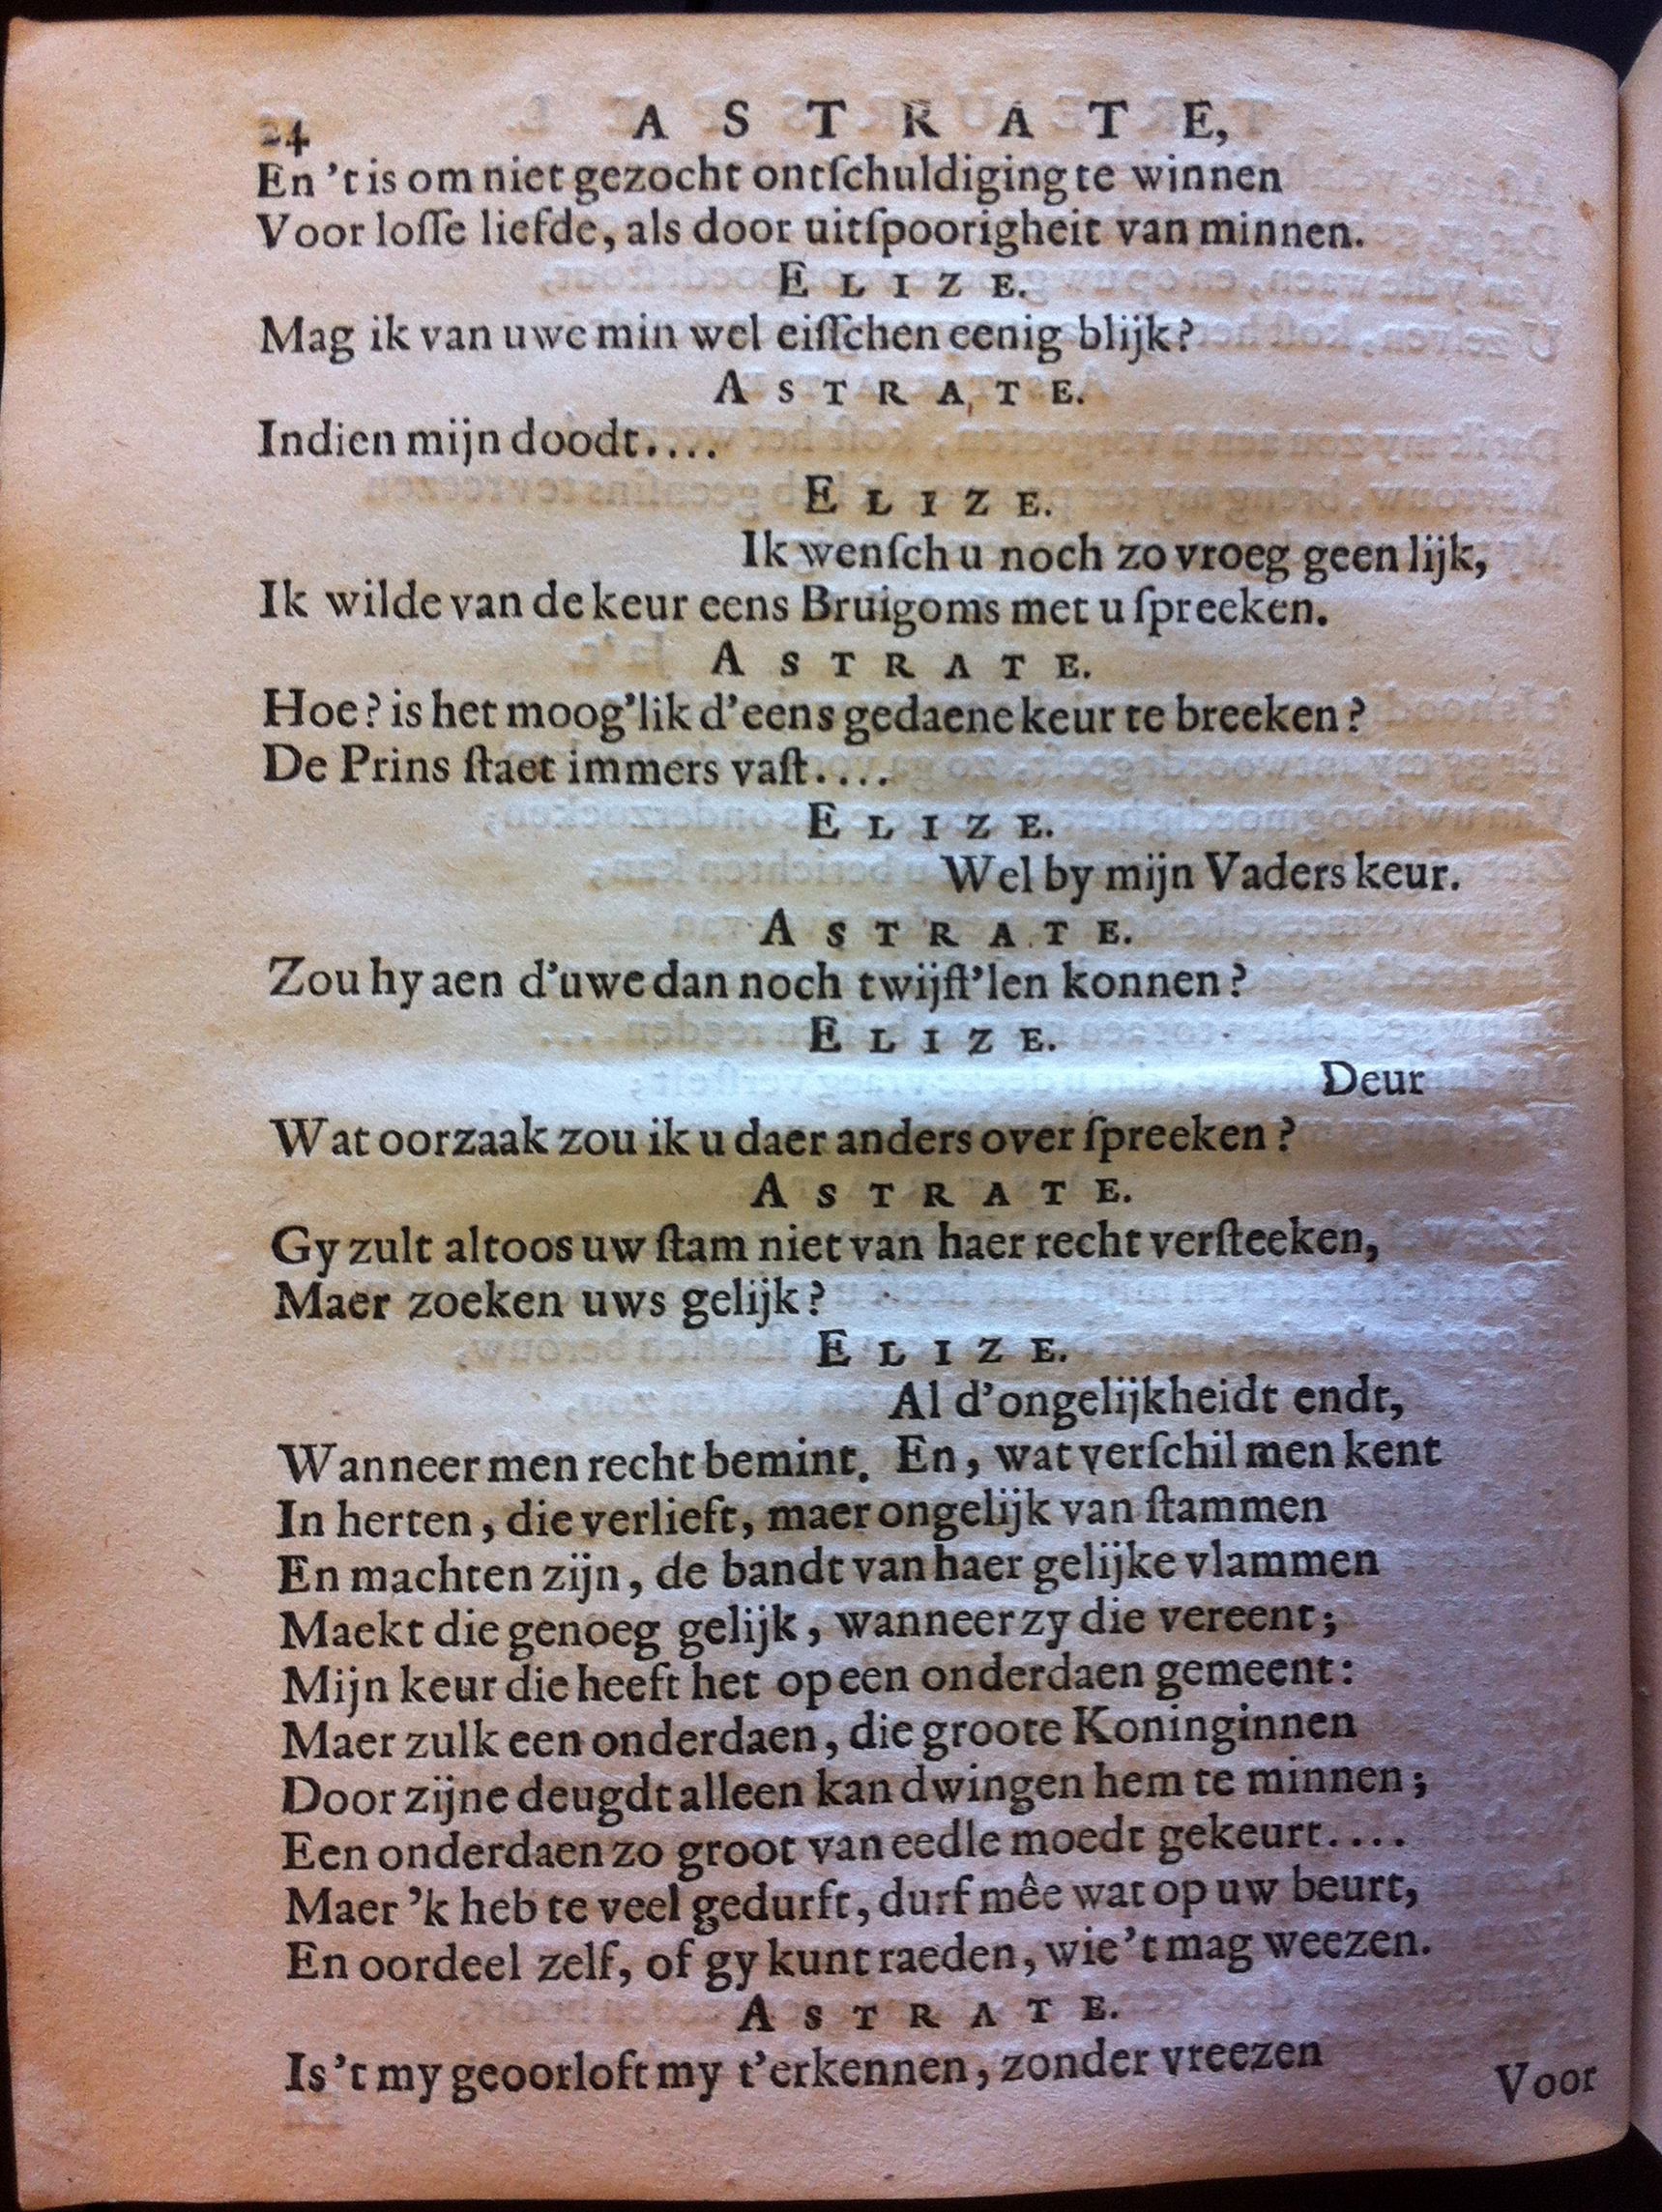 24 ASTRATE,
En 't is om niet gezocht ontſchuldiging te winnen
Voor loſſe liefde, als door uitſpoorigheit van minnen.
ELIZE.
Mag ik van uwe min wel eiſſchen eenig blijk?
ASTRATE.
Indien mijn doodt....
ELIZE.
Ik wenſch u noch zo vroeg geen lijk,
Ik wilde van de keur eens Bruigoms met u ſpreeken.
ASTRATE.
Hoe? is het moog'lik d'eens gedaene keur te breeken?
De Prins ſtaet immers vaſt....
ELIZE.
Wel by mijn Vaders keur.
ASTRATE.
Zou hy aen d'uwe dan noch twijff'len konnen?
ELIZE.
Deur
Wat oorzaak zou ik u daer anders over ſpreeken?
ASTRATE.
Gy zult altoos uw ſtam niet van haer recht verſteeken,
Maer zoeken uws gelijk?
ELIZE.
Al d'ongelijkheidt endt,
Wanneer men recht bemint. En, wat verſchil men kent
In herten, die verlieft, maer ongelijk van ſtammen
En machten zijn, de bandt van haer gelijke vlammen
Maekt die genoeg gelijk, wanneer zy die vereent;
Mijn keur die heeft het op een onderdaen gemeent:
Maer zulk een onderdaen, die groote Koninginnen
Door zijne deugdt alleen kan dwingen hem te minnen;
Een onderdaen zo groot van eedle moedt gekeurt....
Maer 'k heb te veel gedurft, durf mêe wat op uw beurt,
En oordeel zelf, of gy kunt raeden, wie 't mag weezen.
ASTRATE.
Is 't my geoorloft my t'erkennen, zonder vreezen
Voor